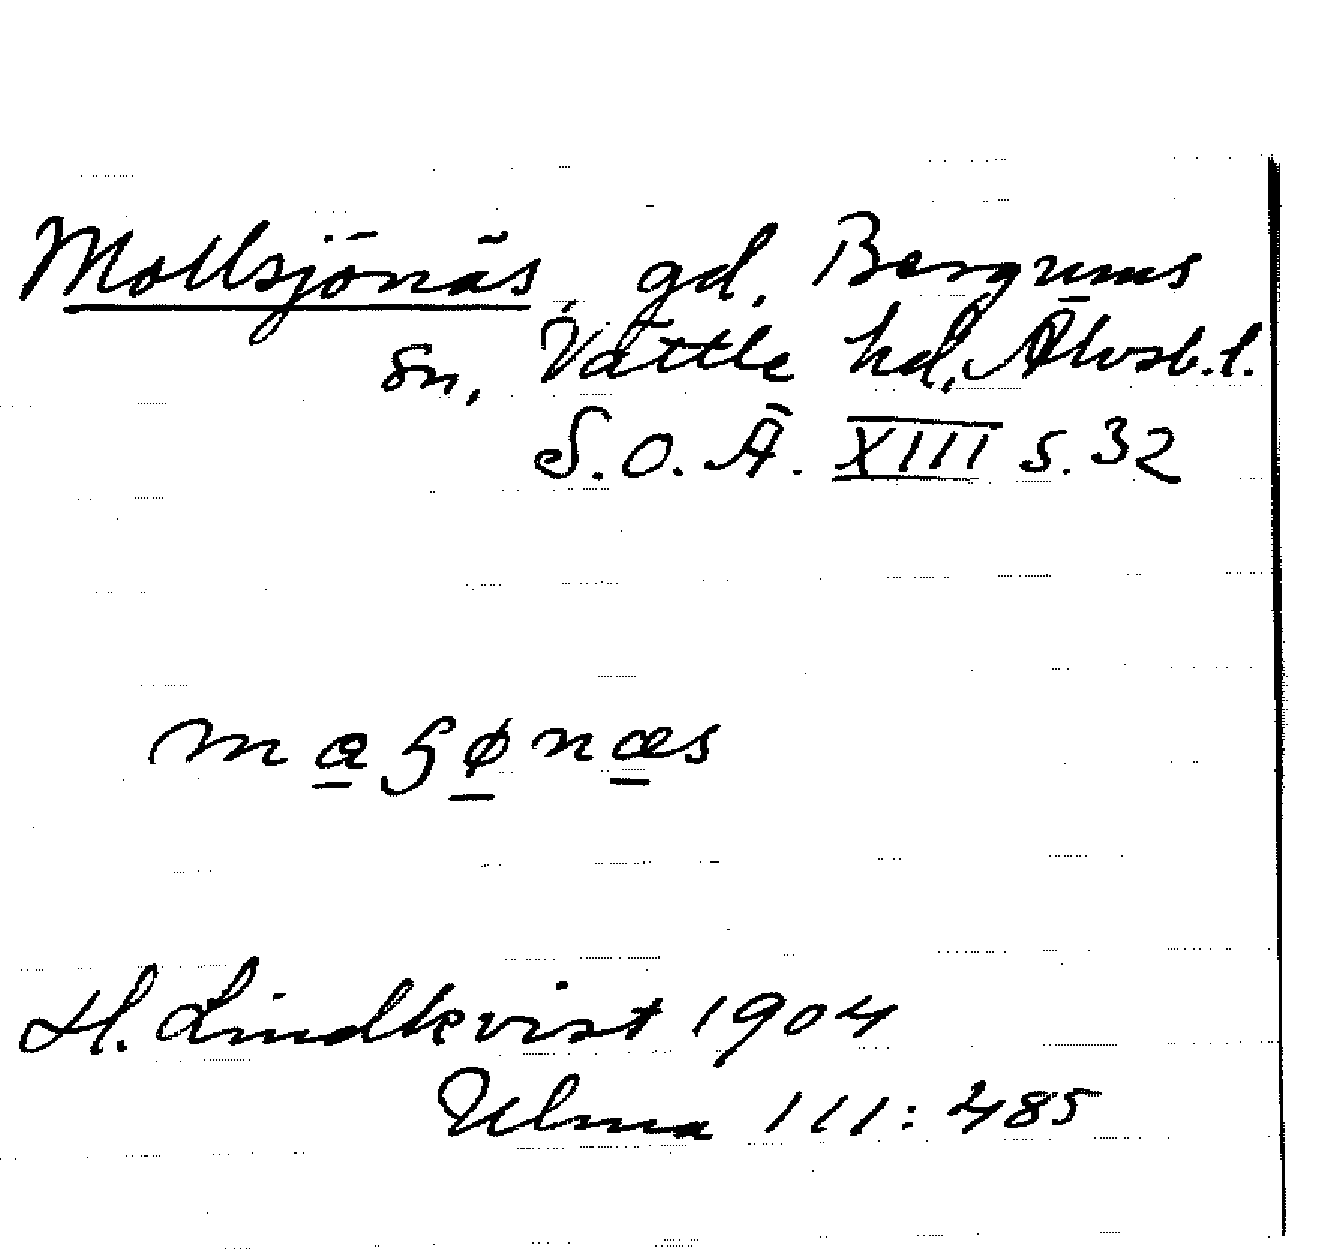 Mollsjönäs, gd, Bergums
sn, Vättle hd, Älvsb.l.
S.O.Ä. XIII s. 32
H. Lindkvist 1904
Ulma 111:485